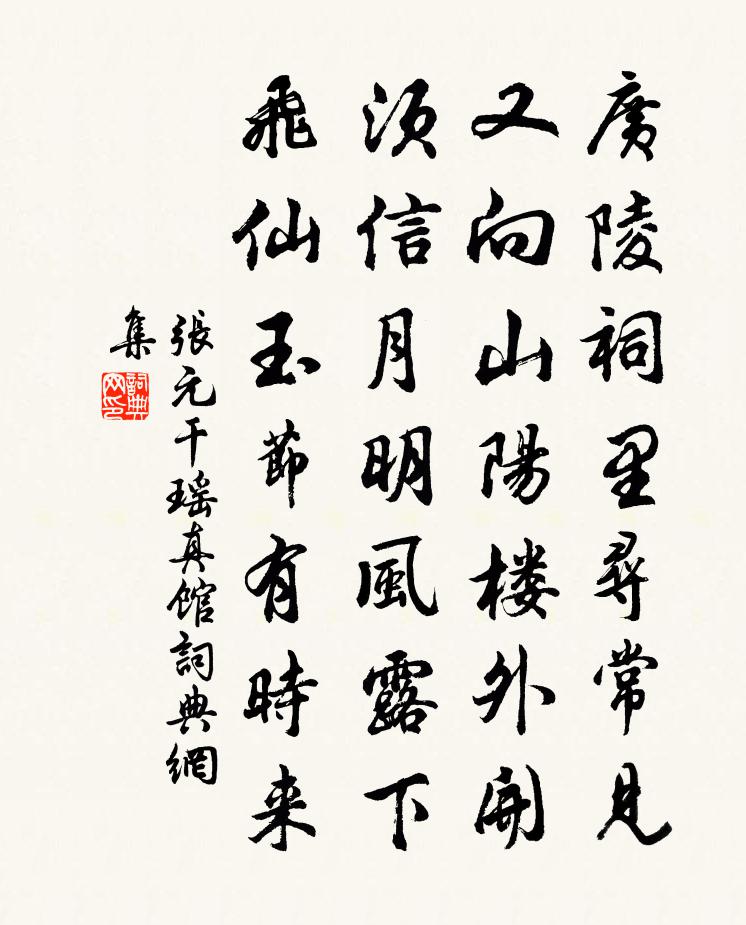 廣陵祠里尋常見
又向山陽樓外開
須信月明風露下
飛仙玉節有時来
張元干瑶真館詞典網
集
詞典
网印